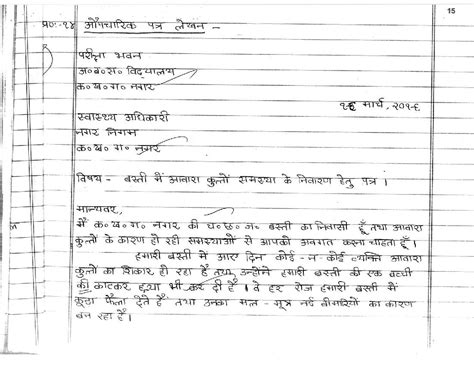 15
प्र०:-१४ औपचारिक पत्र लेखन -
परीक्षा भवन
अ०ब०स० विद्यालय
क०ख०ग० नगर
मार्च, २०१८
स्वास्थ्य अधिकारी
नगर निगम
क०ख०ग० नगर
विषय - बस्ती में आवारा कुत्तों समस्या के निवारण हेतु पत्र ।
मान्यवर,
मैं क०ख०ग० नगर की च०छ०ज० बस्ती का निवासी हूँ तथा आवारा
कुत्तों के कारण हो रही समस्याओं से आपको अवगत कराना चाहता हूँ।
हमारी बस्ती में आए दिन कोई - न - कोई व्यक्ति आवारा
कुत्तों का शिकार हो रहा है तथा उन्होंने हमारी बस्ती की एक बच्ची
की काटकर हत्या भी कर दी है। वे हर रोज हमारी बस्ती में
कूड़ा फैला देते हैं तथा उनका मल - मूत्र नई बीमारियों का कारण
बन रहा है।